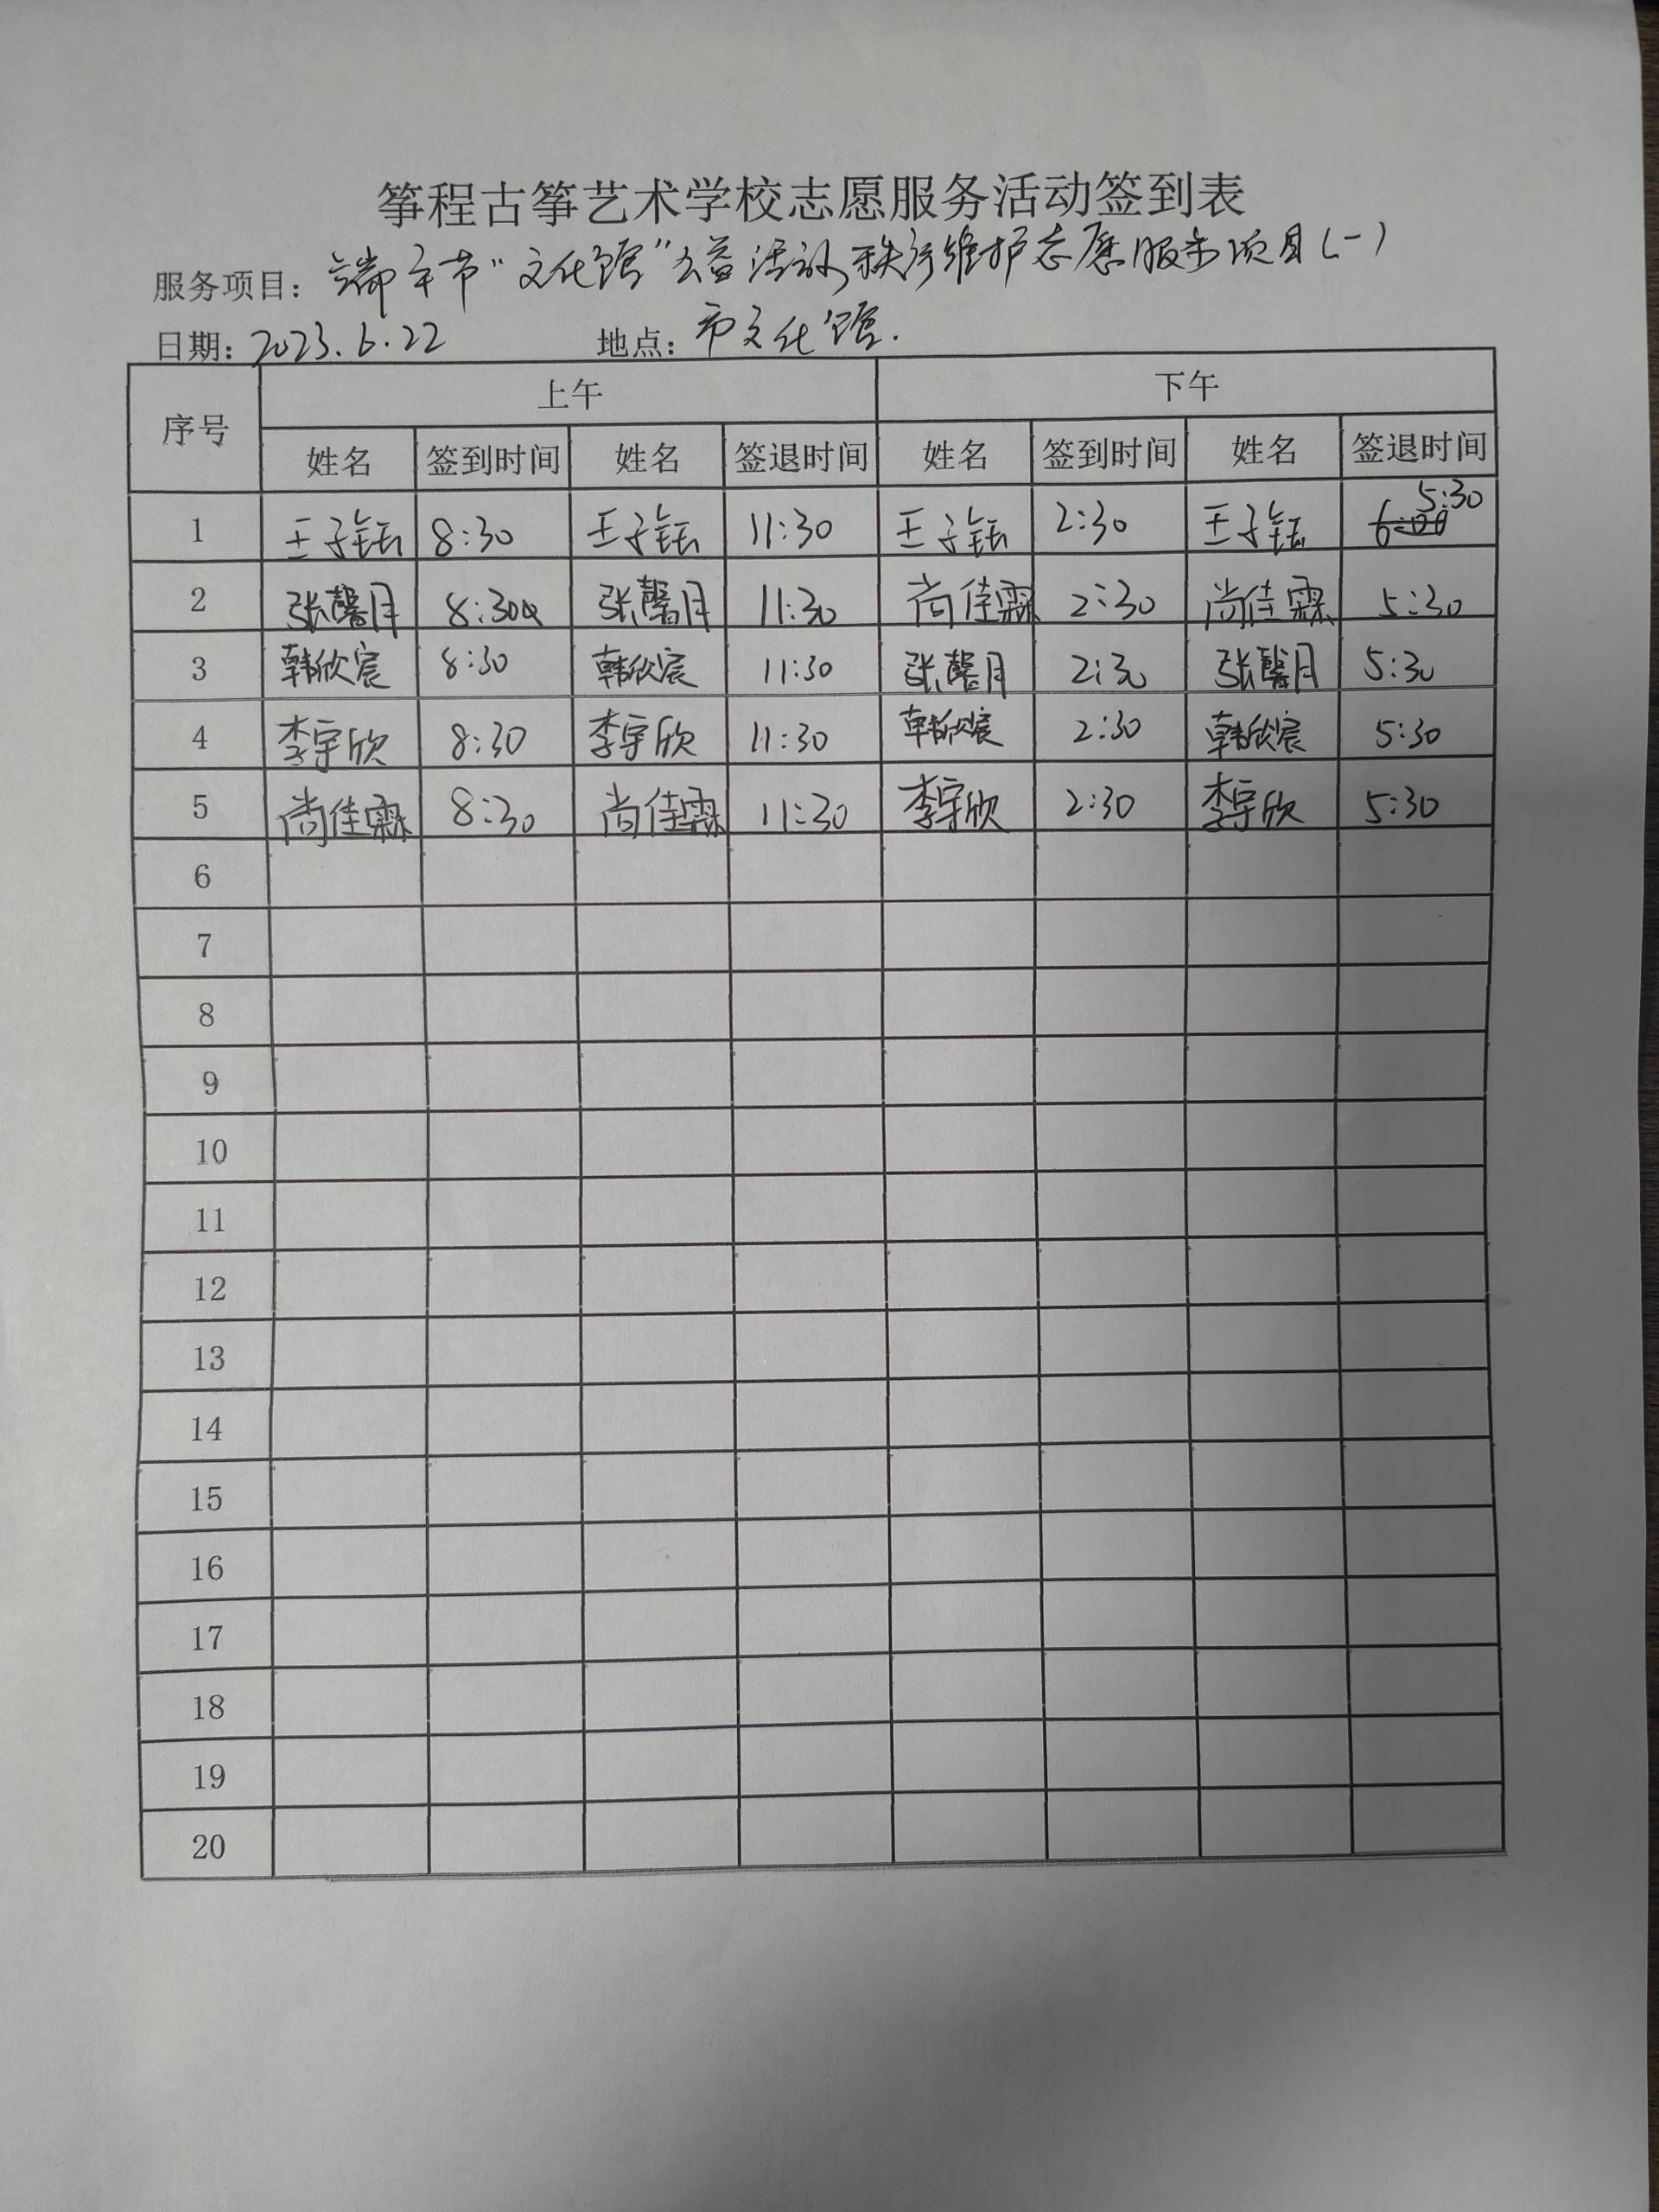 筝程古筝艺术学校志愿服务活动签到表
服务项目：端午节“文化馆”公益活动秩序维护志愿服务项目(一)
日期：2023.6.22 地点：市文化馆.
序号 上午 下午
姓名 签到时间 姓名 签退时间 姓名 签到时间 姓名 签退时间
5:30
1 王子钰 8:30 王子钰 11:30 王子钰 2:30 王子钰 6:00
2 张馨月 8:30 张馨月 11:30 尚佳霖 2:30 尚佳霖 5:30
3 韩欣宸 8:30 韩欣宸 11:30 张馨月 2:30 张馨月 5:30
4 李宇欣 8:30 李宇欣 11:30 韩欣宸 2:30 韩欣宸 5:30
5 尚佳霖 8:30 尚佳霖 11:30 李宇欣 2:30 李宇欣 5:30
6
7
8
9
10
11
12
13
14
15
16
17
18
19
20